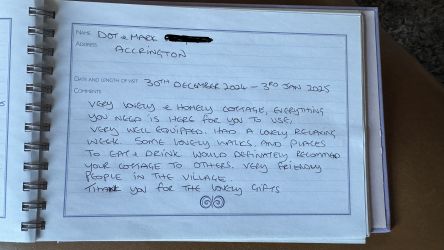 NAME DOT & MARK
ADDRESS ACCRINGTON
DATE AND LENGTH OF VISIT 30TH DECEMBER 2024 - 3RD JAN 2025
COMMENTS
VERY LOVELY & HOMELY COTTAGE, EVERYTHING
YOU NEED IS HERE FOR YOU TO USE,
VERY WELL EQUIPPED. HAD A LOVELY RELAXING
WEEK. SOME LOVELY WALKS AND PLACES
TO EAT & DRINK WOULD DEFINATELY RECOMMED
YOUR COTTAGE TO OTHERS. VERY FRIENDLY
PEOPLE IN THE VILLAGE.
THANK YOU FOR THE LOVELY GIFTS